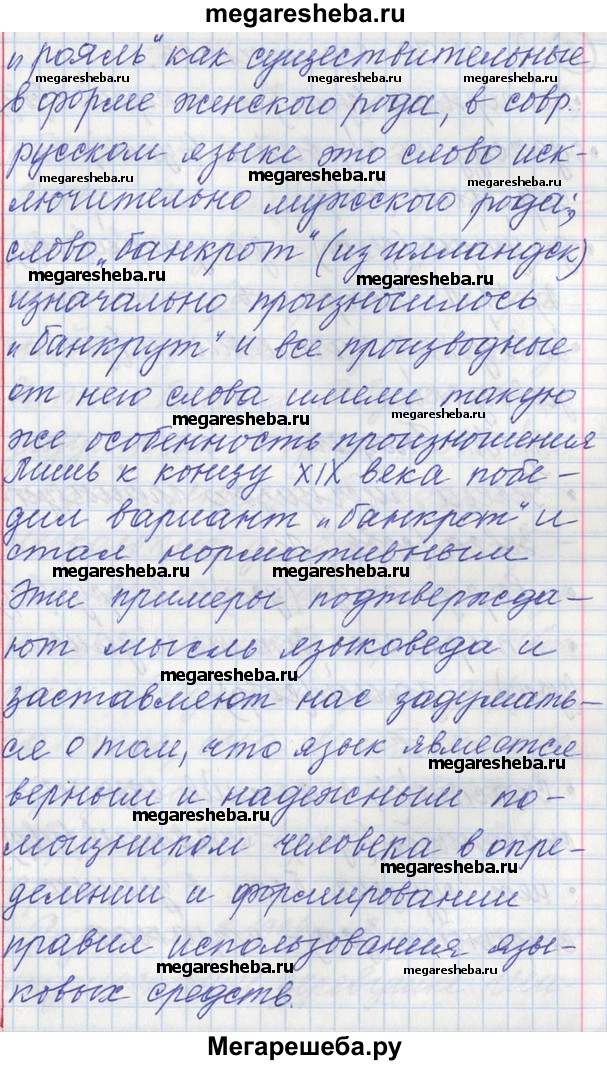 megaresheba.ru
„рояль“ как существительные
megaresheba.ru megaresheba.ru megaresheba.ru
в форме женского рода, в совр.
русском языке это слово иск-
megaresheba.ru megaresheba.ru megaresheba.ru
лючительно мужского рода;
слово „банкрот“ (из голландск)
megaresheba.ru megaresheba.ru
изначально произносилось
„банкрут“ и все производные
от него слова имели такую
megaresheba.ru megaresheba.ru
же особенность произношения
Лишь к концу XIX века побе-
дил вариант „банкрот“ и
стал нормативным
megaresheba.ru megaresheba.ru
Эти примеры подтвержда-
ют мысль языковеда и
megaresheba.ru
заставляют нас задумать-
ся о том, что язык является
megaresheba.ru
верным и надежным по-
megaresheba.ru
мощником человека в опре-
megaresheba.ru
делении и формировании
правил использования язы-
megaresheba.ru megaresheba.ru
ковых средств.
Мегарешеба.ру